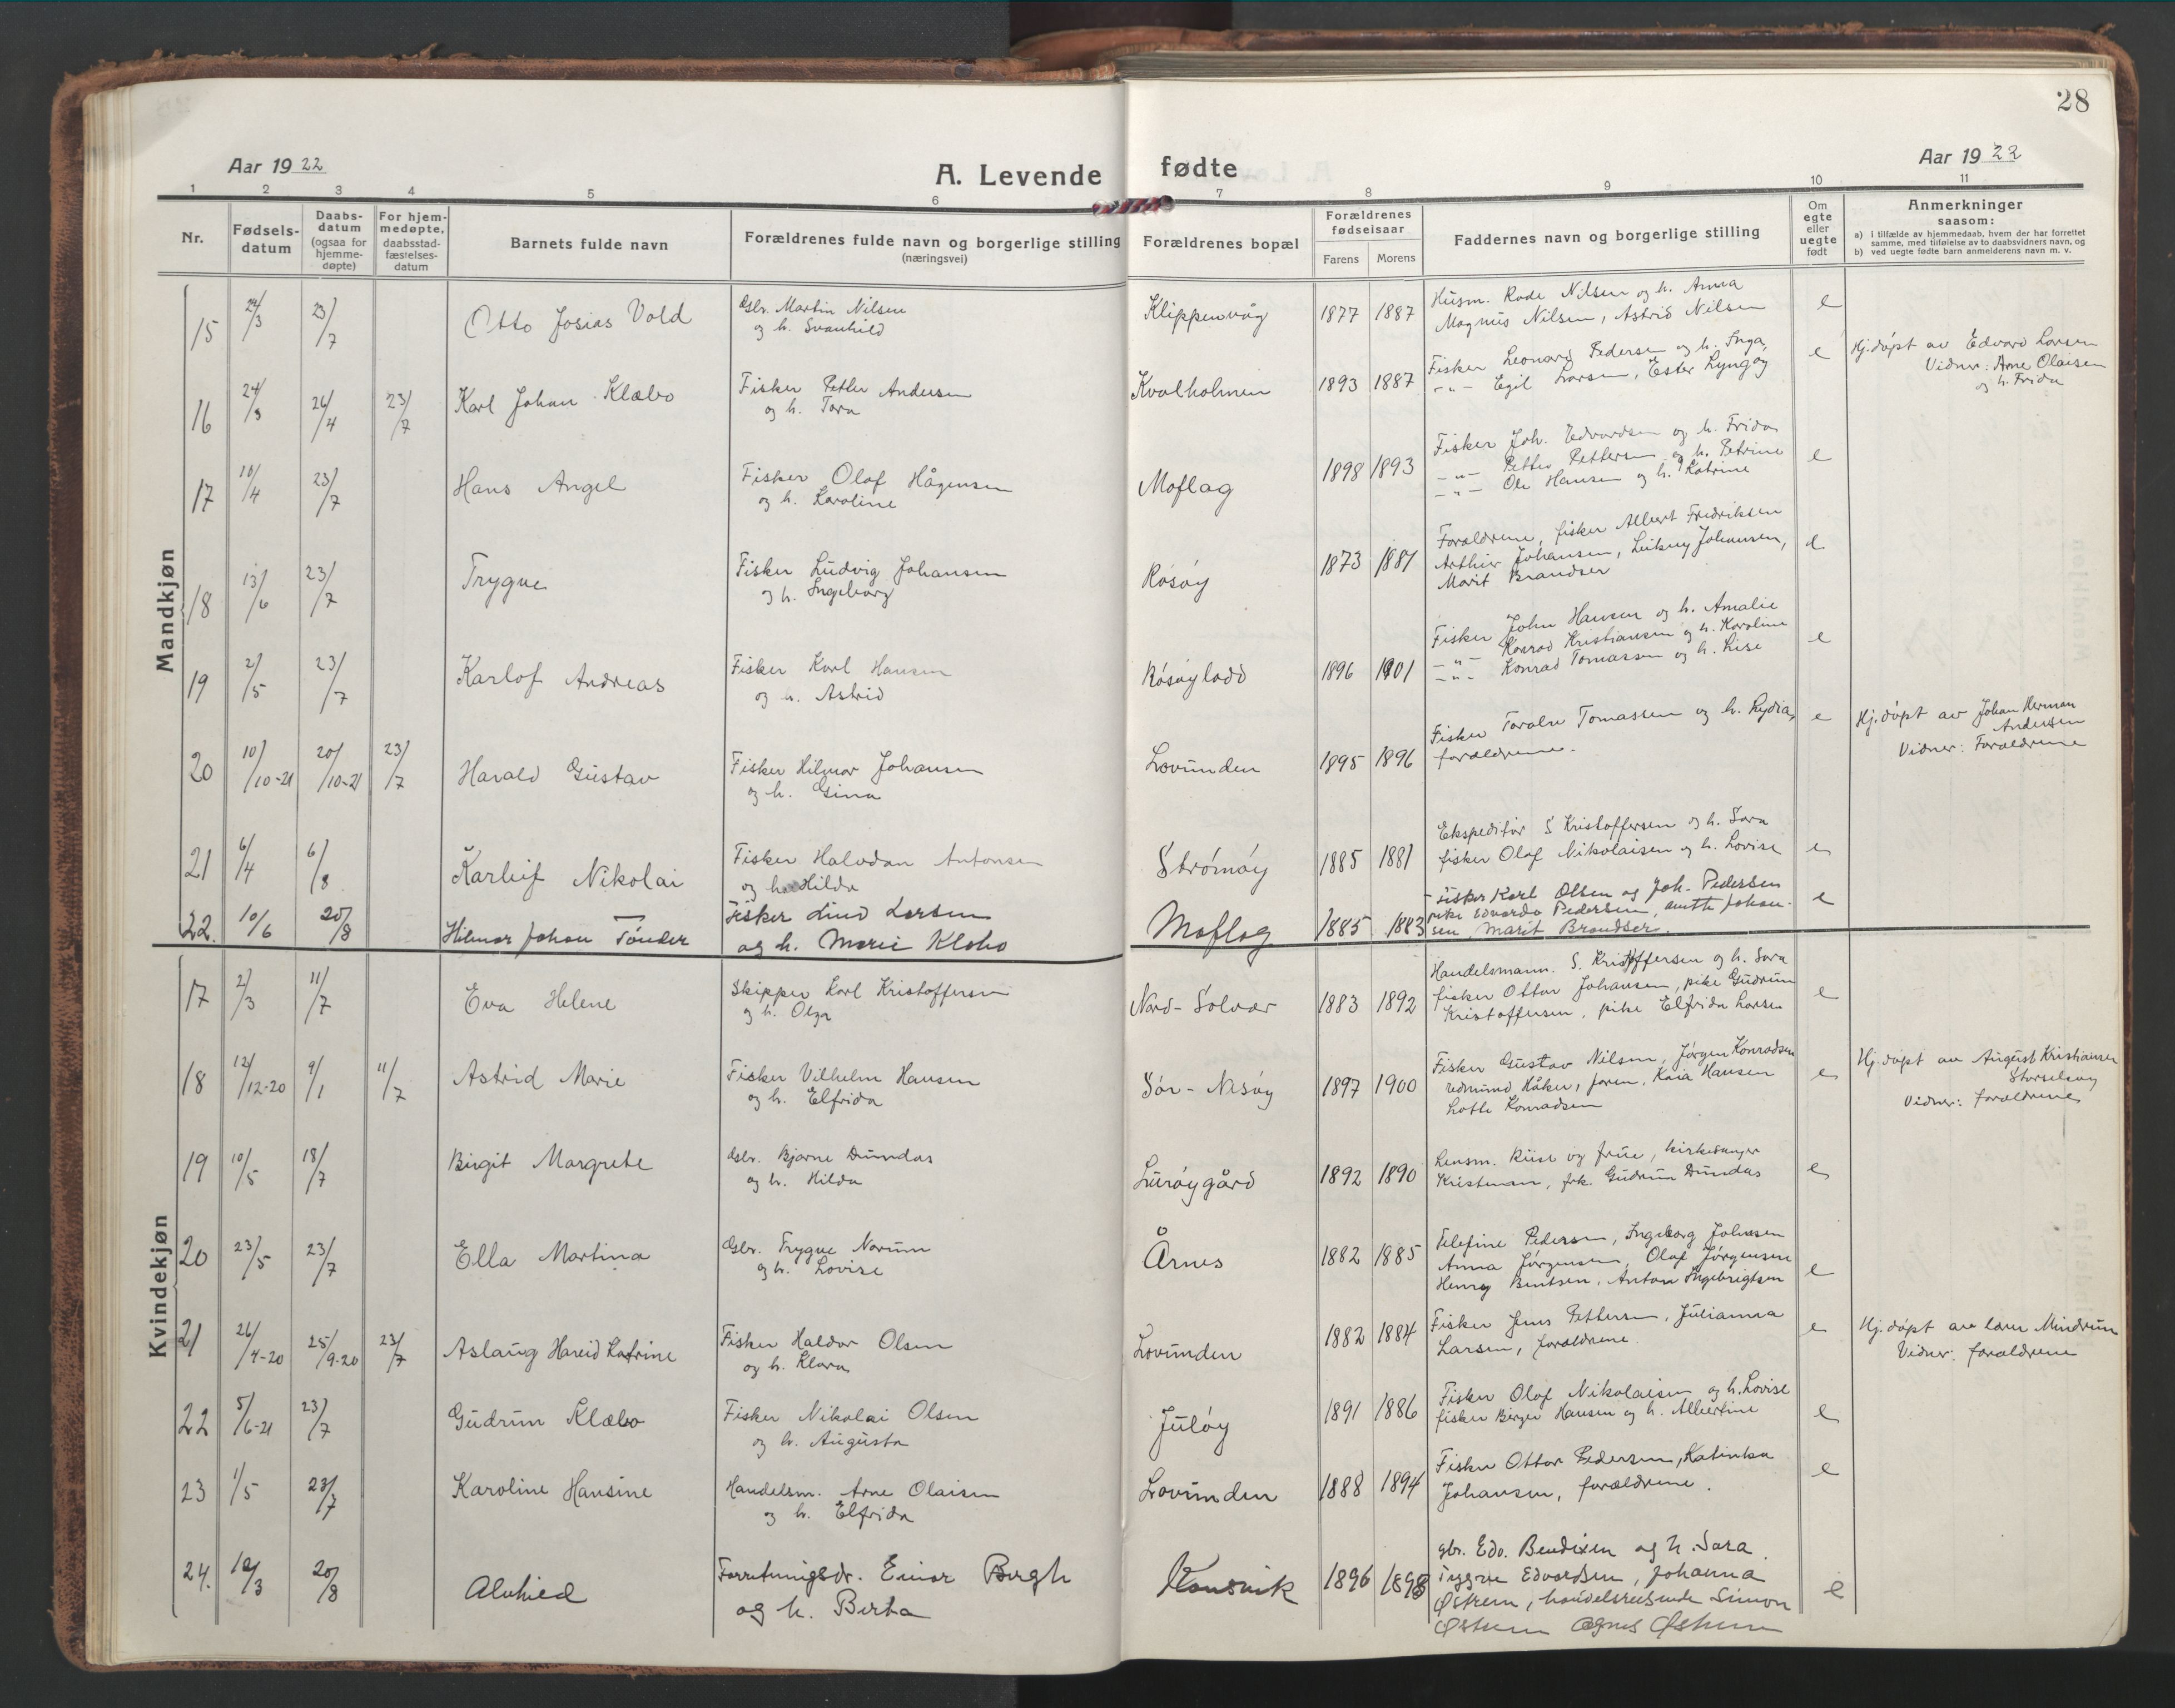 28
Aar 1922
A. Levende fødte
Aar 1922
1 2 3 4 5 6 7 8 9 10 11
Nr.
Fødsels-
datum
Daabs-
datum
(ogsaa for
hjemme-
døpte)
For hjem-
medøpte,
daabsstad-
fæstelses-
datum
Barnets fulde navn
Forældrenes fulde navn og borgerlige stilling
(næringsvei)
Forældrenes bopæl
Forældrenes
fødselsaar
Farens Morens
Faddernes navn og borgerlige stilling
Om
egte
eller
uegte
født
Anmerkninger
saasom:
a) i tilfælde av hjemmedaab, hvem der har forrettet
samme, med tilføielse av to daabsvidners navn, og
b) ved uegte fødte barn anmelderens navn m. v.
Mandkjøn
15 24/3 23/7 Otto Josias Vold
Gbr. Martin Nilsen
og h. Svanhild
Klippenvåg 1877 1887
Husm. Rode Nilsen og h. Anna
Magnus Nilsen, Astrid Nilsen
e
16 24/3 26/4 23/7 Karl Johan Klæbo
Fisker Petter Andersen
og h. Tora
Kvalholmen 1893 1887
Fisker Leonard Pedersen og h. Inga,
-"- Egil Larsen, Ester Lyngøy
e
Hj.døpt av Edvard Larsen
Vidner: Arne Olaisen
og h. Frida
17 10/4 23/7 Hans Angel
Fisker Olaf Hågensen
og h. Karoline
Moflag 1898 1893
Fisker Joh. Edvardsen og h. Frida
-"- Petter Pettersen og h. Petrine
-"- Ole Hansen og h. Katrine
e
18 13/6 23/7 Trygve
Fisker Ludvig Johansen
og h. Ingeborg
Råsøy 1873 1881
Forældrene, fisker Albert Fredriksen
Arthur Johansen, Leikny Johansen,
Marit Brandser
e
19 2/5 23/7 Karlof Andreas
Fisker Karl Hansen
og h. Astrid
Råsøyladd 1896 1901
Fisker John Hansen og h. Amalie
-"- Konrad Kristiansen og h. Karoline
-"- Konrad Tomassen og h. Lise
e
20 10/10-21 20/10-21 23/7 Harald Gustav
Fisker Hilmar Johansen
og h. Gina
Lovunden 1895 1896
Fisker Toralv Tomassen og h. Lydia,
forældrene.
e
Hj.døpt av Johan Herman
Andersen
Vidner: Forældrene
21 6/4 6/8 Karleif Nikolai
Fisker Halvdan Antonsen
og h. Hilda
Strømøy 1885 1881
Ekspeditør S Kristoffersen og h. Sara
fisker Olaf Nikolaisen og h. Lovise
e
22. 10/6 20/8 Hilmar Johan Tønder
Fisker Lind Larsen
og h. Marie Klæbo
Moflag 1885 1883
fisker Karl Olsen og Joh. Pedersen
pike Edvarda Pedersen, Johan-
sen, Marit Brandser.
e
Kvindekjøn
17 2/3 11/7 Eva Helene
Skipper Karl Kristoffersen
og h. Olga
Nord-Solvær 1883 1892
Handelsmann. S. Kristoffersen og h. Sara
fisker Ottar Johansen, pike Gudrun
Kristoffersen, pike Elfrida Larsen
e
18 12/12-20 9/1 11/7 Astrid Marie
Fisker Vilhelm Hansen
og h. Elfrida
Sør-Nesøy 1897 1900
Fisker Gustav Nilsen, Jørgen Konradsen
Edmund Håker, Kaia Hansen
Lotte Konradsen
e
Hj.døpt av August Kristiansen
Storselsøy
Vidner: forældrene
19 10/5 18/7 Birgit Margrete
Gbr. Bjarne Dundas
og h. Hilda
Lurøygård 1892 1890
Lensm. Riise og frue, kirkesanger
Kristensen, frk. Gudrun Dundas
e
20 23/5 23/7 Ella Martina
Gbr. Trygve Norum
og h. Lovise
Årnes 1882 1885
Telefine Pedersen, Ingeborg Johnsen
Anna Jørgensen, Olaf Jørgensen
Henry Bentsen, Anton Ingebrigtsen
e
21 26/4-20 25/9-20 23/7 Aslaug Hareid Katrine
Fisker Haldor Olsen
og h. Klara
Lovunden 1882 1884
Fisker Jens Pettersen, Julianna
Larsen, forældrene.
e
Hj.døpt av lærer Mindrum
Vidner: forældrene
22 5/6-21 23/7 Gudrun Klæbo
Fisker Nikolai Olsen
og h. Augusta
Juløy 1891 1886
Fisker Olaf Nikolaisen og h. Lovise
fisker Birger Hansen og h. Albertine
e
23 1/5 23/7 Karoline Hansine
Handelsm. Arne Olaisen
og h. Elfrida
Lovunden 1888 1894
Fisker Ottar Pedersen, Katinka
Johansen, forældrene.
e
24. 10/3 20/8 Alvhied
Forretningsdr. Einar Bergh
og h. Berta
Konsvik 1896 1898
gbr. Edv. Bendixen og h. Sara.
Tryggve Edvardsen, Johanna
Østrem, handelsreisende Simon
Østrem Agnes Østrem
e